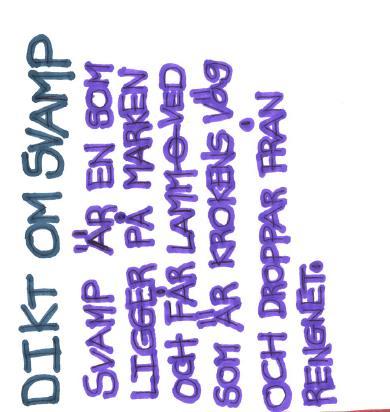 DIKT OM SVAMP
SVAMP ÄR EN SOM
LIGGER PÅ MARKEN
OCH FÅR LAMM-O-VED
SOM ÄR KROKENS VÅG
OCH DROPPAR FRÅN
RENGNET.